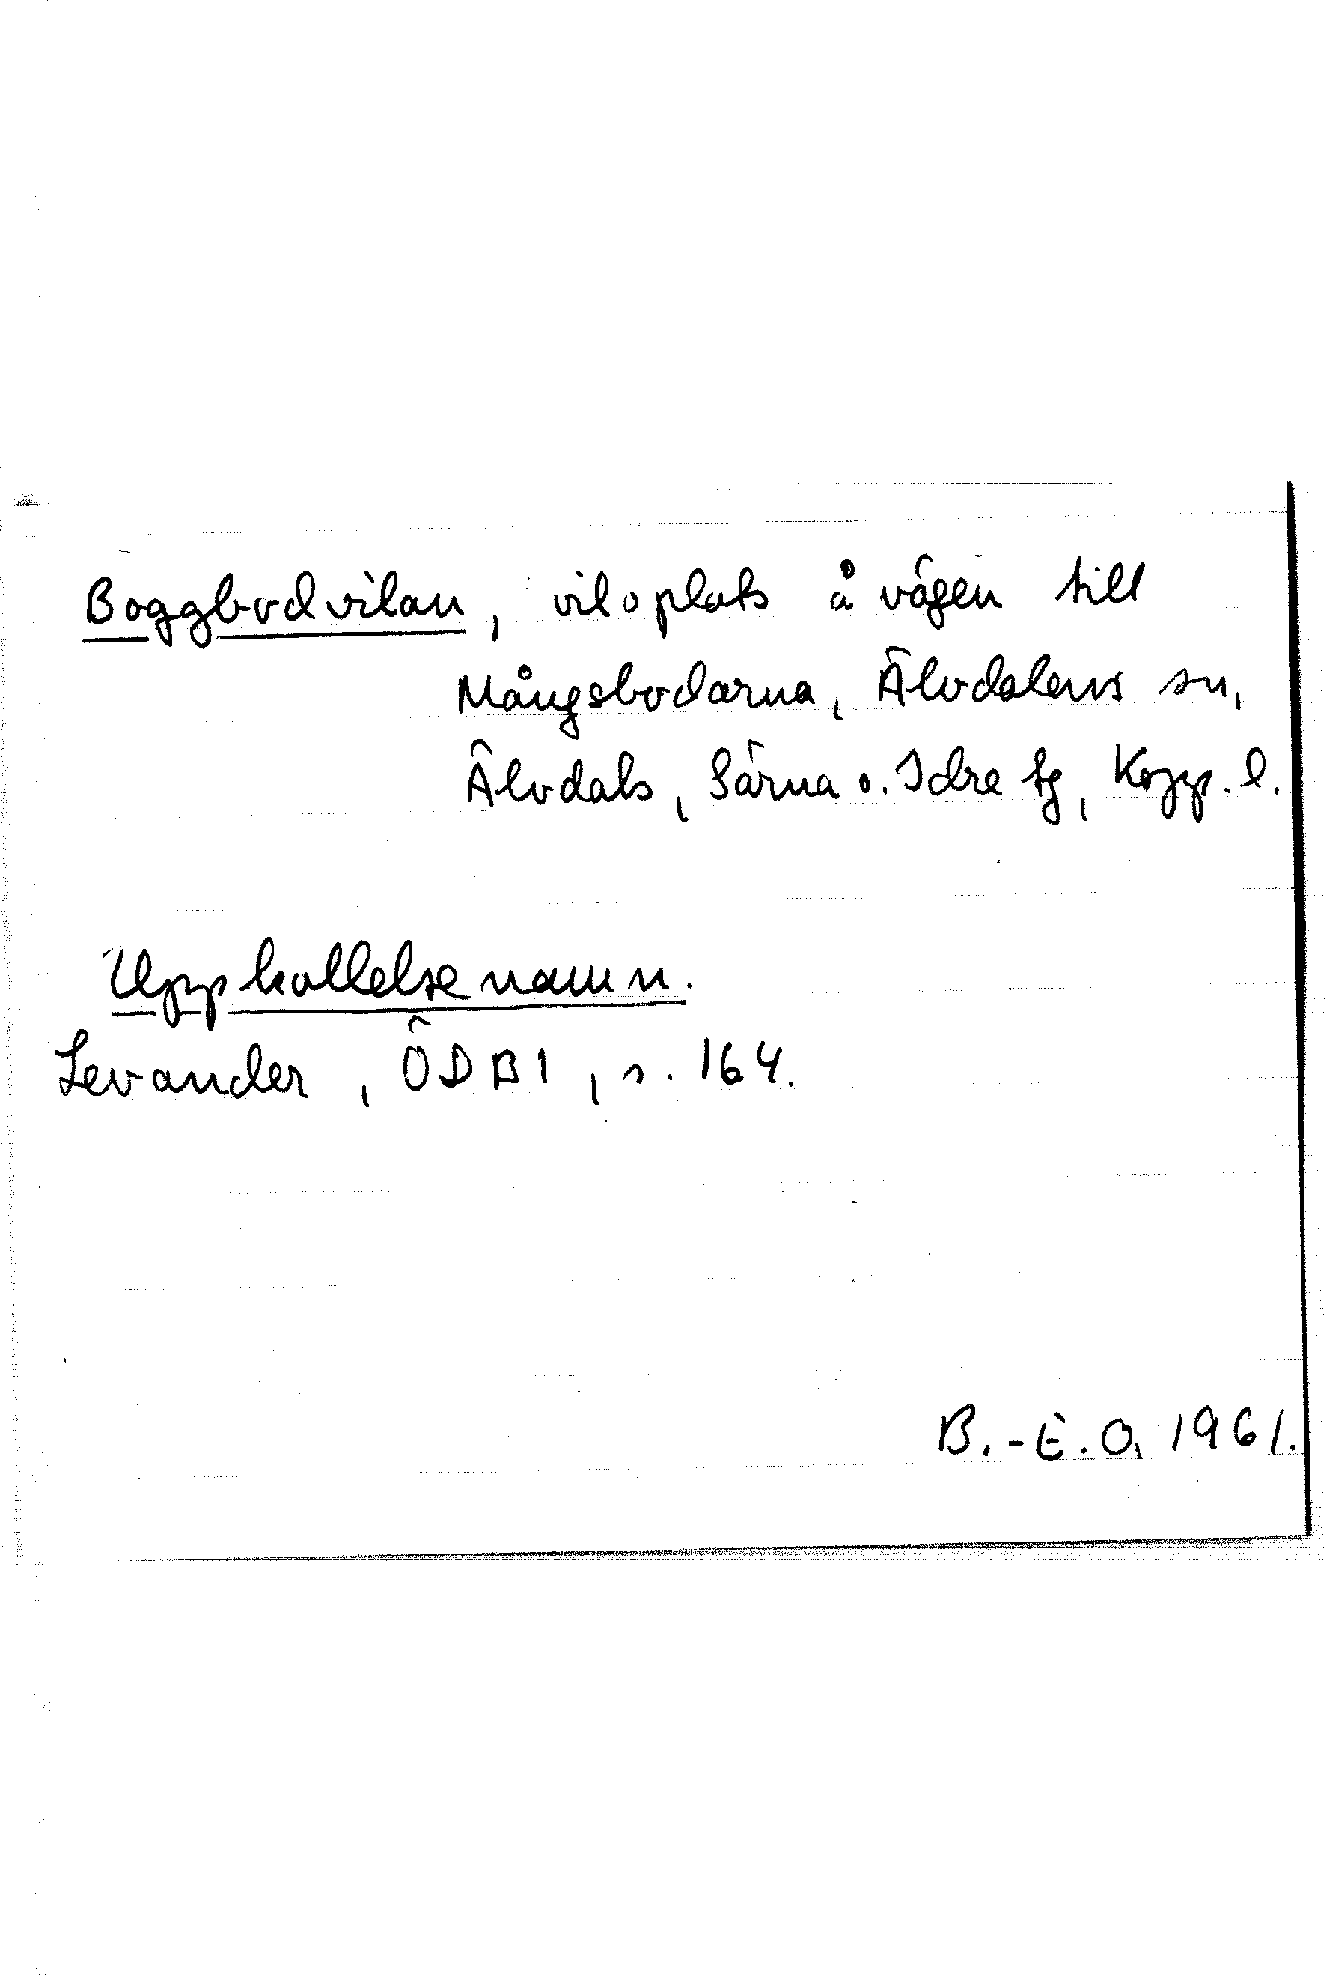 Boggbodvilan, viloplats å vägen till
Mångsbodarna, Älvdalens sn,
Älvdals, Särna o. Idre tg, Kopp. l.
Uppkallelsenamn.
Levander, ÖDB1, s. 164.
B.-E.O. 1961.